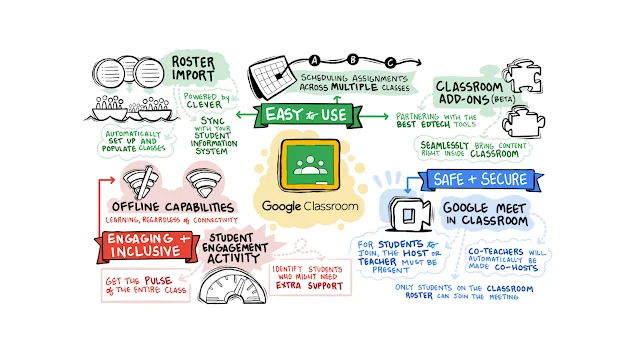 ROSTER
IMPORT
POWERED by
CLEVER
SYNC
WITH YOUR
STUDENT
INFORMATION
SYSTEM
AUTOMATICALLY
SET UP AND
POPULATE CLASSES
A B C
SCHEDULING ASSIGNMENTS
ACROSS MULTIPLE CLASSES
EASY to USE
CLASSROOM
ADD-ONS (BETA)
PARTNERING WITH THE
BEST EDTECH TOOLS
SEAMLESSLY BRING CONTENT
RIGHT INSIDE CLASSROOM
Google Classroom
OFFLINE CAPABILITIES
LEARNING, REGARDLESS of CONNECTIVITY
ENGAGING +
INCLUSIVE
STUDENT
ENGAGEMENT
ACTIVITY
GET THE PULSE
of THE ENTIRE CLASS
IDENTIFY STUDENTS
WHO MIGHT NEED
EXTRA SUPPORT
SAFE + SECURE
GOOGLE MEET
IN CLASSROOM
FOR STUDENTS to
JOIN, THE HOST or
TEACHER MUST BE
PRESENT
CO-TEACHERS WILL
AUTOMATICALLY BE
MADE CO-HOSTS
ONLY STUDENTS ON THE CLASSROOM
ROSTER CAN JOIN THE MEETING